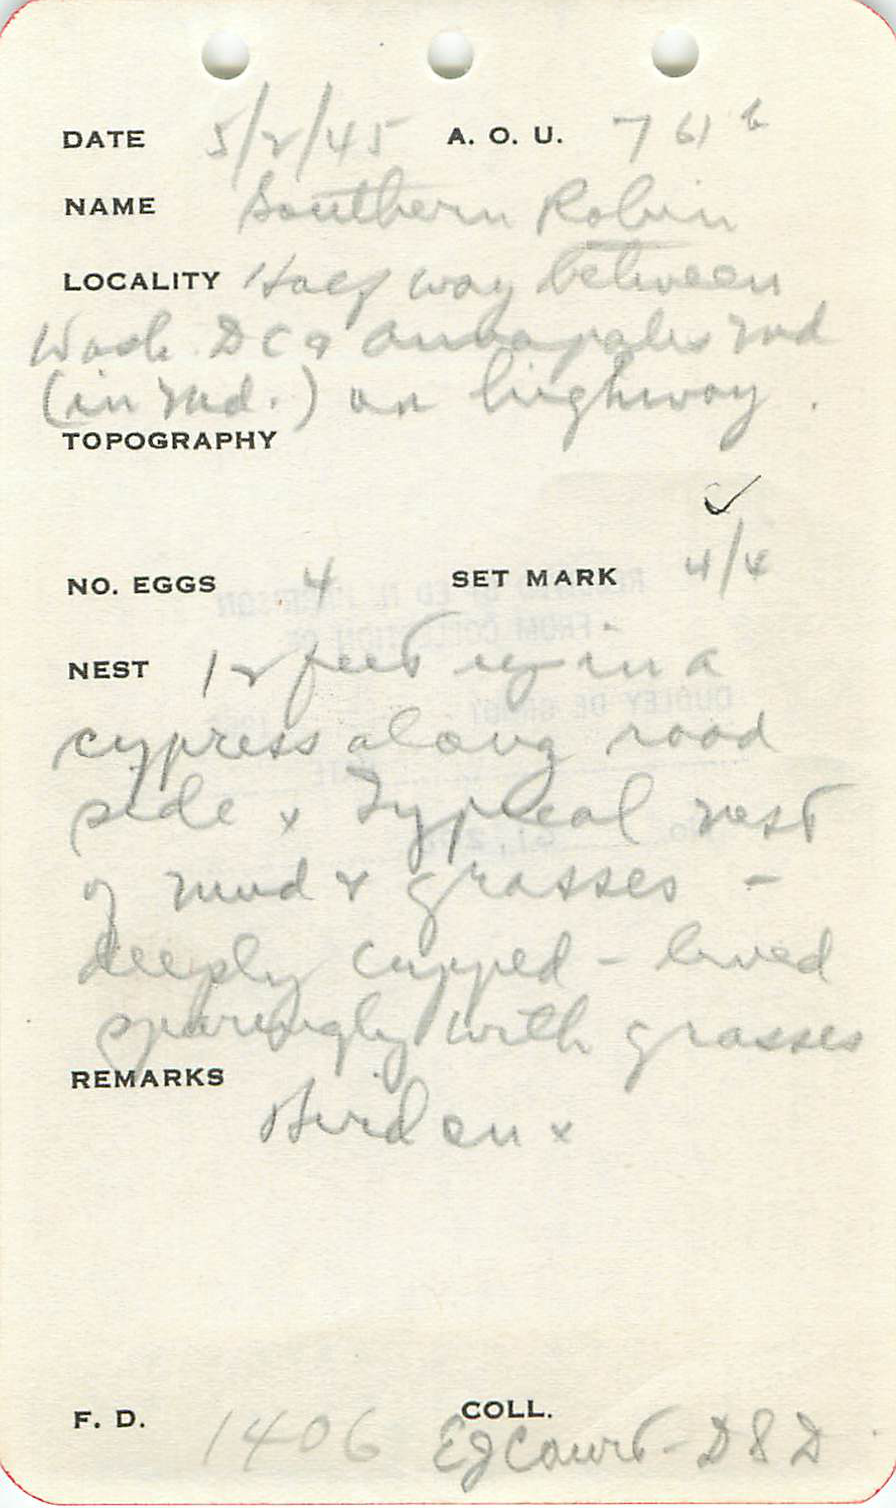 DATE 5/2/45 A. O. U. 761 b
NAME Southern Robin
LOCALITY Half way between
Wash. D C & Annapolis Md
(in Md.) on highway.
TOPOGRAPHY
✓
NO. EGGS 4 SET MARK 4/4
NEST 12 feet up in a
cypress along road
side x Typical nest
of mud & grasses -
deeply cupped - lined
sparingly with grasses
REMARKS
Bird on x
F. D. 1406 COLL.
EJ Court - D S D